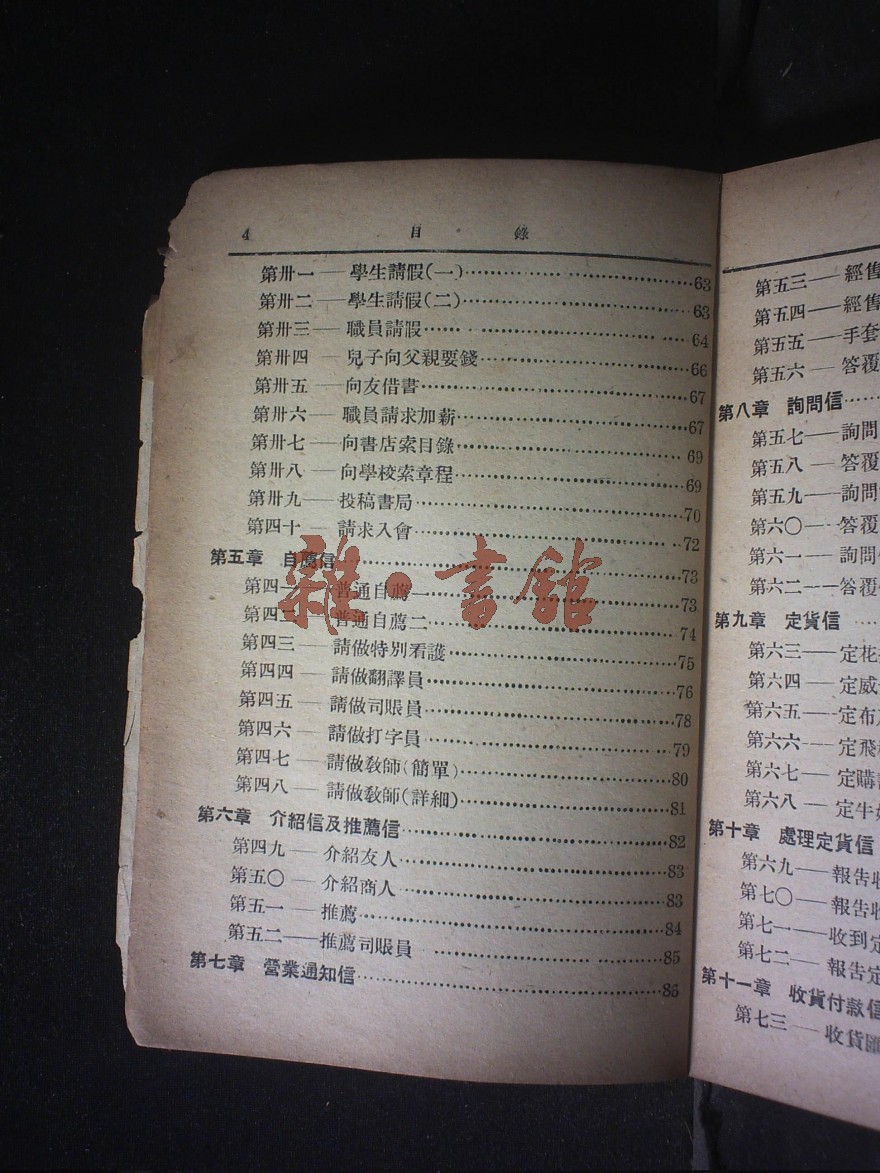 4 目 錄
第卅一 — 學生請假(一)……63
第卅二 — 學生請假(二)……63
第卅三 — 職員請假……64
第卅四 — 兒子向父親要錢……66
第卅五 — 向友借書……67
第卅六 — 職員請求加薪……67
第卅七 — 向書店索目錄……69
第卅八 — 向學校索章程……69
第卅九 — 投稿書局……70
第四十 — 請求入會……72
第五章 自薦信……73
第四一 — 普通自薦一……73
第四二 — 普通自薦二……74
第四三 — 請做特別看護……75
第四四 — 請做翻譯員……76
第四五 — 請做司賬員……78
第四六 — 請做打字員……79
第四七 — 請做教師(簡單)……80
第四八 — 請做教師(詳細)……81
第六章 介紹信及推薦信……82
第四九 — 介紹友人……83
第五〇 — 介紹商人……83
第五一 — 推薦……84
第五二 — 推薦司賬員……85
第七章 營業通知信……86
雜·書館
第五三 — 經售
第五四 — 經售
第五五 — 手套
第五六 — 答覆
第八章 詢問信……
第五七 — 詢問
第五八 — 答覆
第五九 — 詢問
第六〇 — 答覆
第六一 — 詢問
第六二 — 答覆
第九章 定貨信……
第六三 — 定花
第六四 — 定威
第六五 — 定布
第六六 — 定飛
第六七 — 定購
第六八 — 定牛
第十章 處理定貨信
第六九 — 報告收
第七〇 — 報告收
第七一 — 收到定
第七二 — 報告定
第十一章 收貨付款信
第七三 — 收貨匯